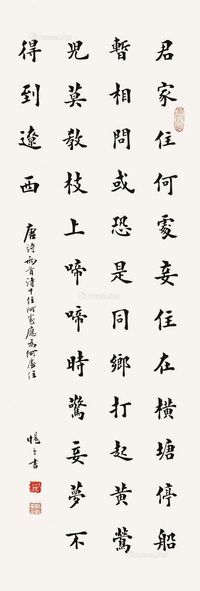 君家住何處妾住在橫塘停船
暫相問或恐是同鄉打起黃鶯
兒莫教枝上啼啼時驚妾夢不
得到遼西
唐詩兩首詩中住何家應為何處住
暢之書